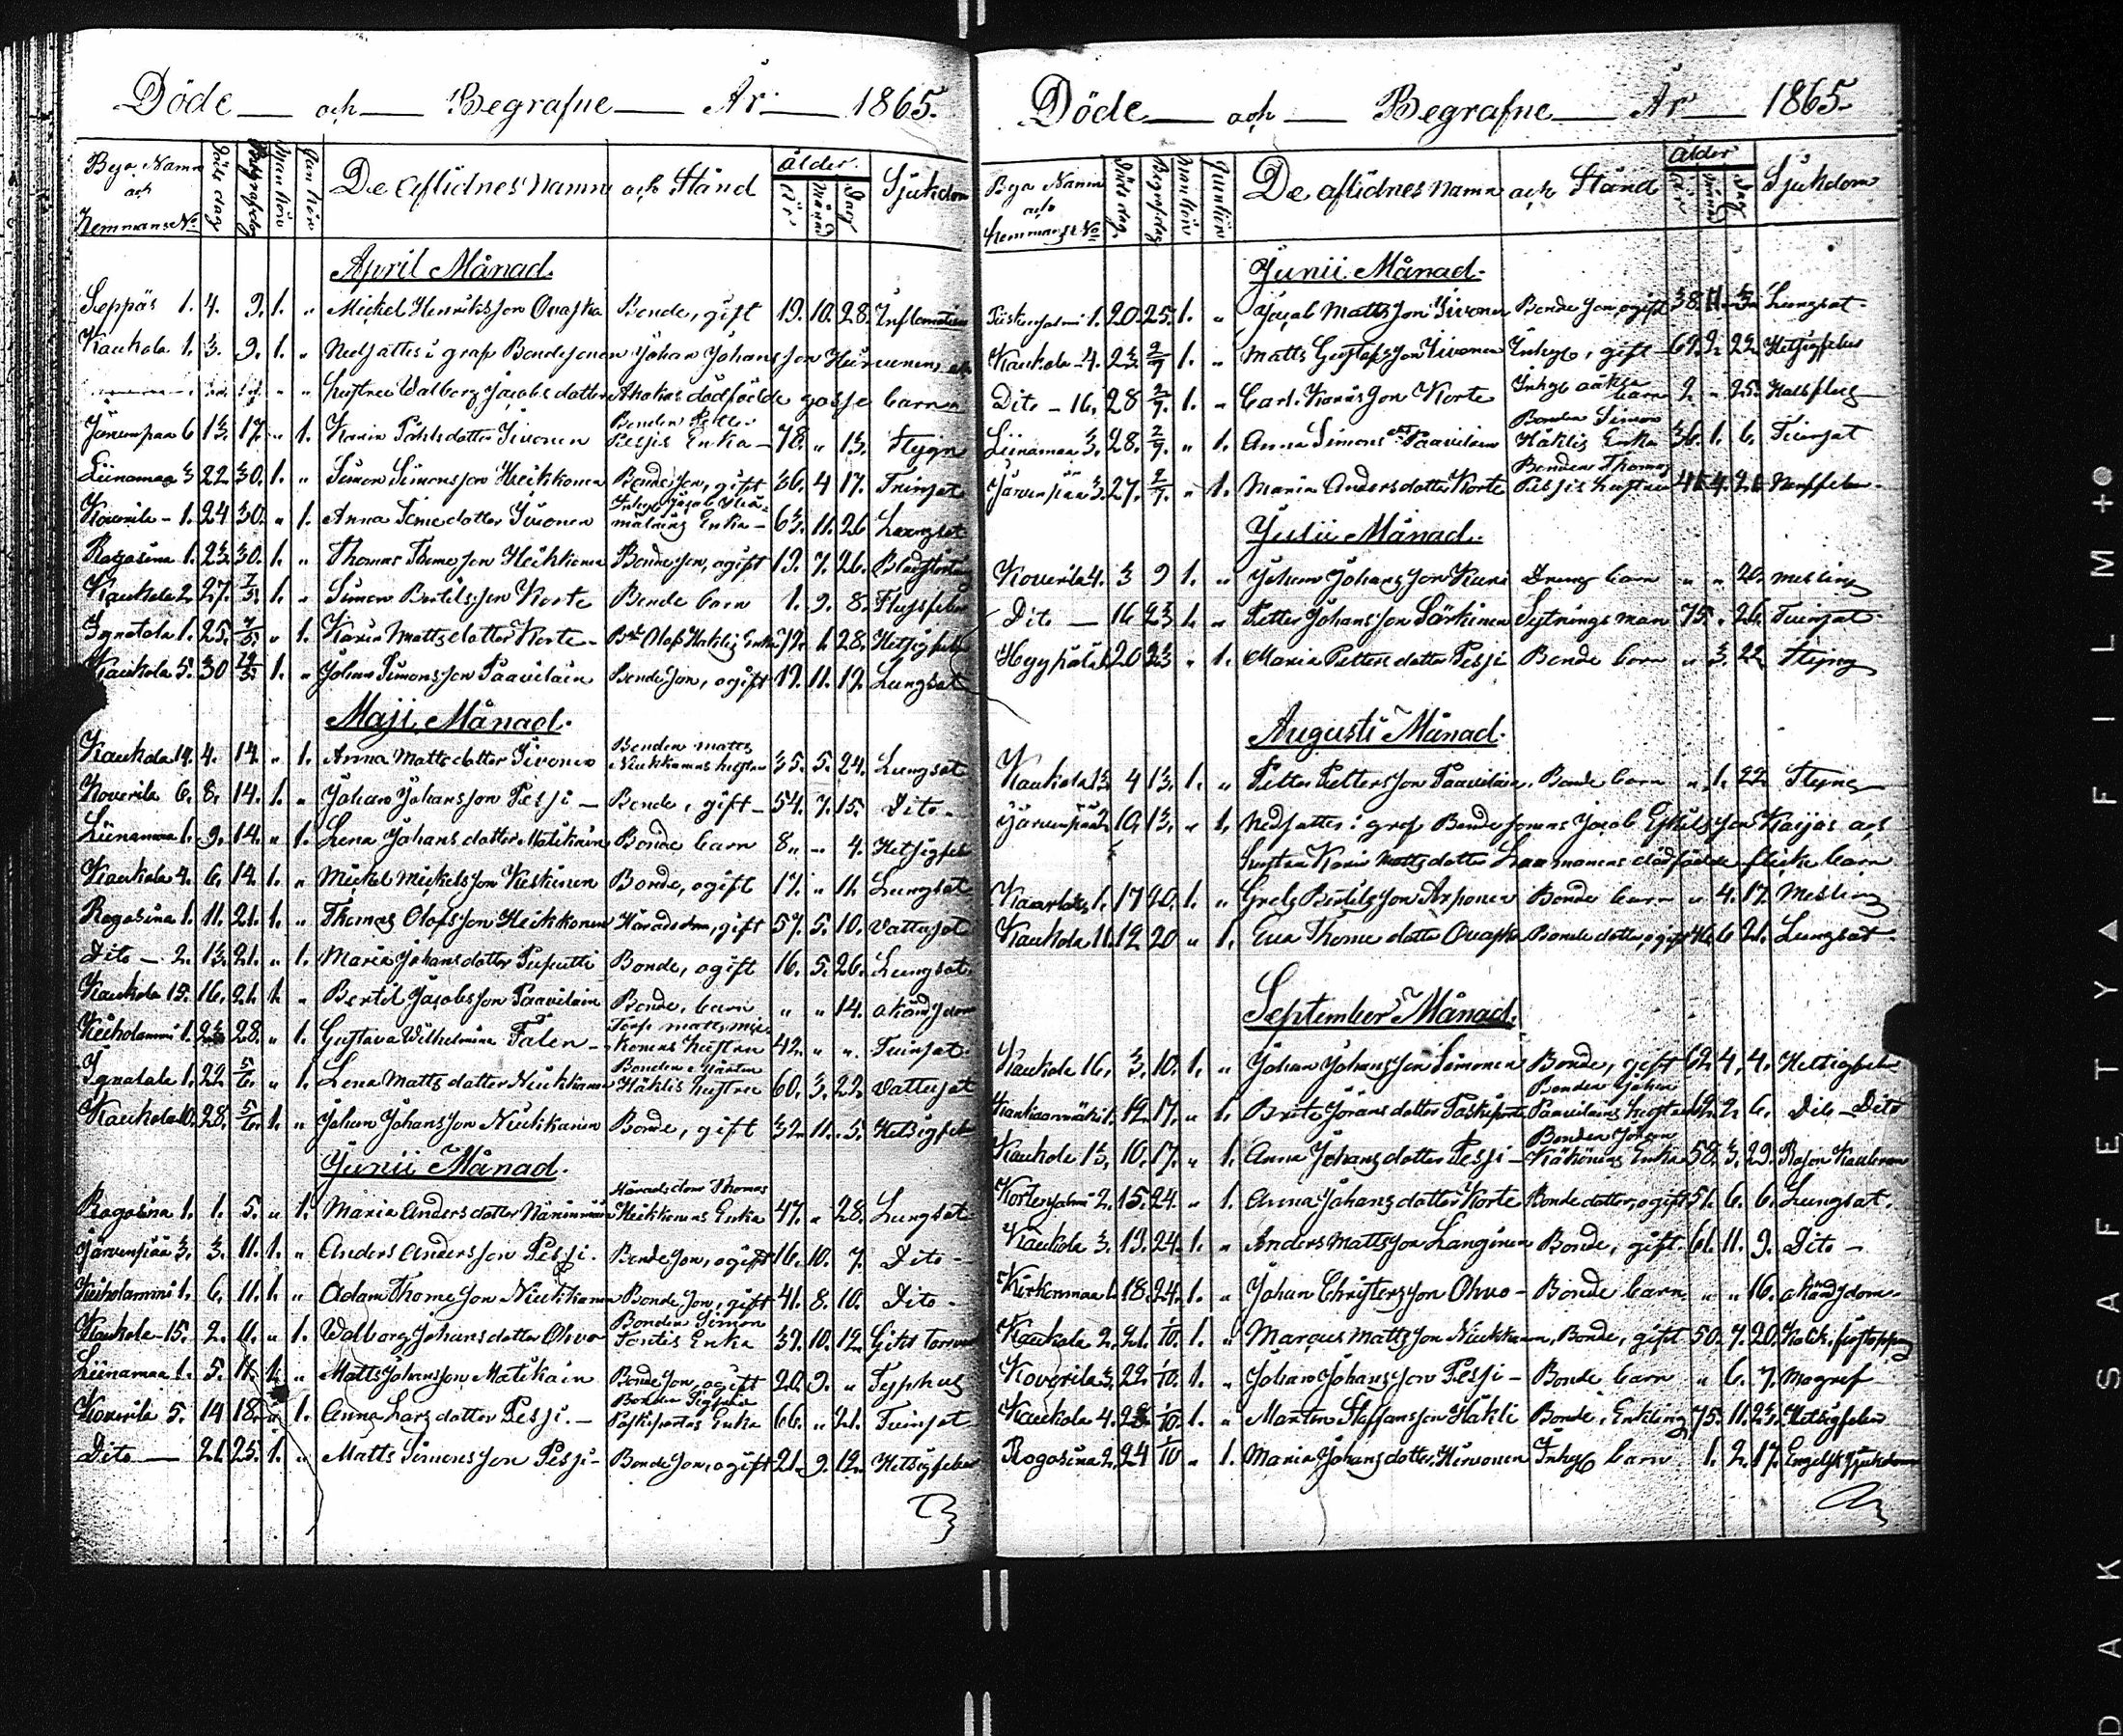 Döde — och — Begrafne — År — 1865.
Bya Namn och Hemmans No. Döds dag Begrafn.dag Mankön Qvinkön De aflidnes namn och Stånd ålder. år månad Dag Sjukdom
April Månad.
Seppäs 1. 4. 9. 1. " Mickel Henriksson Ovaska Bonde, gift 19. 10. 28. Inflamation
Kaukola 1. 3. 9. 1. " Nedsattes i graf Bondesonen Johan Johansson
" " hustrus Walborg Jacobsdotter dödfödde gosse barn
Järvenpää 6 13. 17. " 1. Karin Påhlsdotter Sivonen Bonden Petter Pessis Enka — 78. " 13. Styng
Liinamaa 3 22. 30. 1. " Simon Simonsson Heikkonen Bondeson, gift 36. 4 17. Tvinsot
Koverila — 1. 24 30. " 1. Anna Simedotter Sivonen Enka — 63. 11. 26 Lungsot
Rogosina 1. 23. 30. 1. " Thomas Thomesson Heikkonen Bondeson, ogift 19. 7. 26. Blodstörtning
Kaukola 2. 27. 7/5. 1. " Simon Bertilsson Korte Bonde barn 1. 9. 8. Flussfeber
Ignatala 1. 25. 7/5 " 1. Karin Mattsdotter Korte — Olofs Häklis Enka 1. 28. Hetsigfeber
Kaukola 5. 30 14/5. 1. " Johan Simonsson Paavilain Bondeson, ogift 19. 11. 19. Lungsot
Maji Månad.
Kaukola 14. 4. 14. " 1. Anna Mattsdotter Sivonen Bonden Matts Niukkanens hustru 35. 5. 24. Lungsot
Koverila 6. 8. 14. 1. " Johan Johansson Pessi — Bonde, gift — 54. 7. 15. Dito —
Liinamaa 1. 9. 14. " 1. Lena Johansdotter Matikain Bonde barn 8. " 4. Hetsigfeb
Kaukola 4. 6. 14. 1. " Mickel Mickelsson Keskinen Bonde, ogift 17. " 11. Lungsot
Rogosina 1. 11. 21. 1. " Thomas Olofsson Heikkonen Häradsdom, gift 57. 5. 10. Vattusot
Dito — 2. 13. 21. " 1. Maria Johansdotter Puputti Bonde, ogift 16. 5. 26. Lungsot
Kaukola 15. 16. 21. 1. " Bertil Jacobsson Paavilain Bonde, barn " " 14. okändsjdom
Kiiholanmi 1. 23. 28. " 1. Gustava Wilhelmina Falen — Torp. Matts hustru 42. " " Tvinsot
Ignatala 1. 22. 5/6. " 1. Lena Mattsdotter Niukkanen Bonden Mårten Häklis hustru 60. 3. 22. Vattusot
Kaukola 10. 28. 5/6. 1. " Johan Johansson Niukkanen Bonde, gift 32. 11. 5. Hetsigfeb
Junii Månad.
Rogosina 1. 1. 5. " 1. Maria Andersdotter Häradsdom Thomas Heikkonens Enka 47. " 28. Lungsot
Järvenpää 3. 3. 11. 1. " Anders Andersson Pessi. Bondeson, ogift 16. 10. 7. Dito —
Kiiholanmi 1. 6. 11. 1. " Adam Thomesson Niukkanen Bondeson, gift 41. 8. 10. Dito —
Kaukola — 15. 2. 11. " 1. Walborg Johansdotter Ohvo Bonden Simon Enka 39. 10. 12.
Liinamaa 1. 5. 11. 1. " Matts Johansson Matikain Bondeson, ogift 20. 9. " Typhus
Koverila 5. 14 18. " 1. Anna Larsdotter Pessi. — Enka 66. " 21. Tvinsot
Dito — 21. 25. 1. " Matts Simonsson Pessi — Bondeson, ogift 21. 9. 12. Hetsigfeber
Döde — och — Begrafne — År — 1865.
Bya Namn och Hemmans No Döds dag Begrafn.dag Mankön Qvinkön De aflidnes namn och Stånd ålder år månad Dag Sjukdom
Junii Månad.
1. 20. 25. 1. " Jacob Mattsson Sivonen Bondeson, ogift 38. 11. 3. Lungsot
Kaukola — 4. 23. 2/7 1. " Matts Gustafsson Sivonen Inhys, gift — 69. 9. 22. Hetsigfeber
Dito — 16. 28 2/7. 1. " Carl Korte Inhys barn 2. " 25. Halsfluss
Liinamaa 3. 28. 2/7. " 1. Anna Simonsdtr Paavilain Bonden Simon Häklis Enka 36. 1. 6. Tvinsot
Järvenpää 3. 27. 2/7. " 1. Maria Andersdotter Korte Bonden Thomas Pessis hustru 41. 4. 21
Julii Månad.
Koverila 4. 3 9 1. " Johan Johansson Kuni Dreng barn " " 20. Messling
Dito — 16 23 1. " Petter Johansson Särkinen Sytningsman 75. " 26. Tvinsot
20 23 " 1. Maria Pettersdotter Pessi Bonde barn " 3. 22. Styng
Augusti Månad.
Kaukola 13. 4 13. 1. " Petter Pettersson Paavilain. Bonde barn " 1. 22 Styng
Järvenpää 2. 10. 13. " 1. Nedsattes i graf Bondesonens Jacob Eskilsson Kaijas och
hustrus Karin Mattsdotter dödfödde flicka barn
Kaarlais 1. 17 20. 1. " Grels Bertilsson Arponen Bonde barn " 4. 17. Messling
Kaukola 11. 12 20 " 1. Eva Thomedotter Ovaska Bondedotter, ogift 46. 6 21. Lungsot
September Månad.
Kaukola 16. 3. 10. 1. " Johan Johansson Simonen Bonde, gift 62. 4. 4. Hetsigfeber
12. 17. " 1. Brita Göransdotter Paskiparta Bonden Johan Paavilains hustru 2. 6. Dito — Dito
Kaukola 13. 10. 17. " 1. Anna Johansdotter Pessi — Bonden Johan Käköinens Enka 58. 3. 29.
Kortensalmi 2. 15. 24. " 1. Anna Johansdotter Korte Bondedotter, ogift 51. 6. 6. Lungsot.
Kaukola 3. 19. 24. 1. " Anders Mattsson Langinen Bonde, gift. 61. 11. 9. Dito —
Kirkonmaa 1. 18. 24. 1. " Johan Christersson Ohvo — Bonde barn " " 16. okändsjdom —
Kaukola 2. 21. 1/10. 1. " Marcus Mattsson Niukkanen, Bonde, gift 50. 7. 20.
Koverila 3. 22. 1/10. 1. " Johan Johansson Pessi — Bonde barn " 6. 7. Magref
Kaukola 4. 28. 1/10. 1. " Mårten Staffansson Häkli Bonde, Enkling 75. 11. 23. Hetsigfeber
Rogosina 2. 24 1/10 " 1. Maria Johansdotter, Hirvonen Inhys barn 1. 2. 17. Engelsk Sjukdom
DAK SAFETY FILM